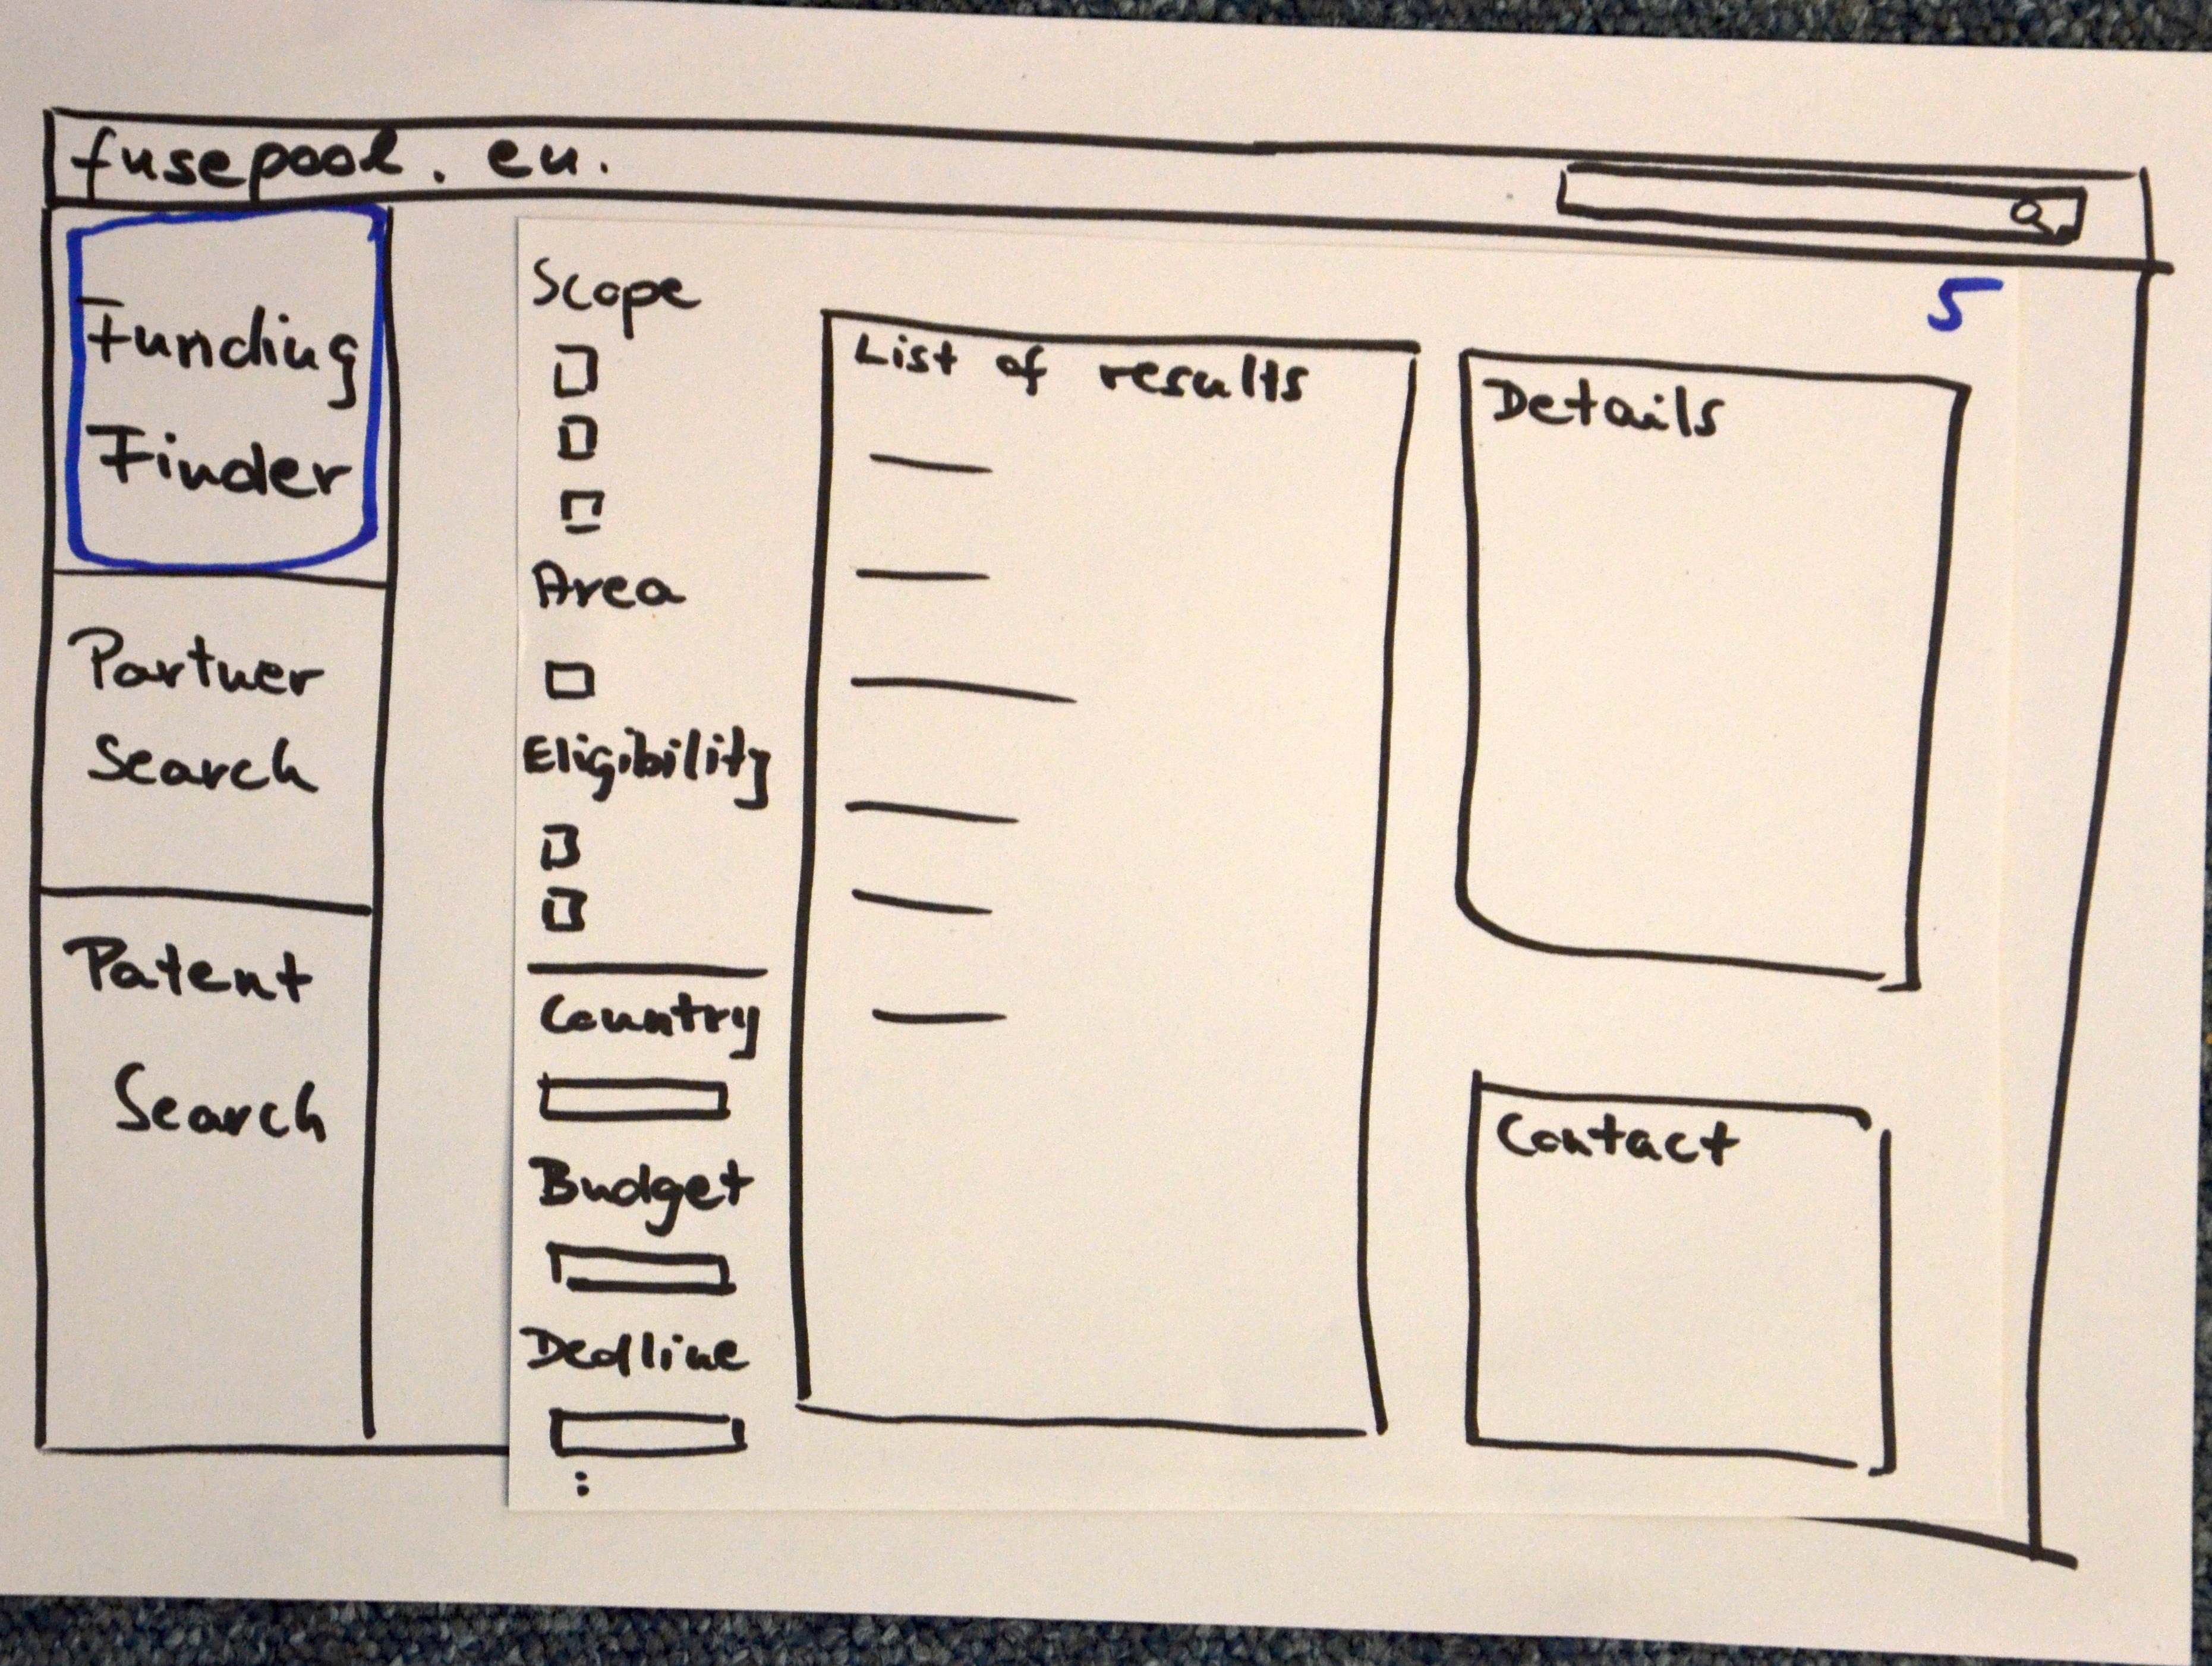 fusepool.eu.
Funding
Finder
Partner
Search
Patent
Search
5
Scope
Area
Eligibility
Country
Budget
Dedline
:
List of results
Details
Contact